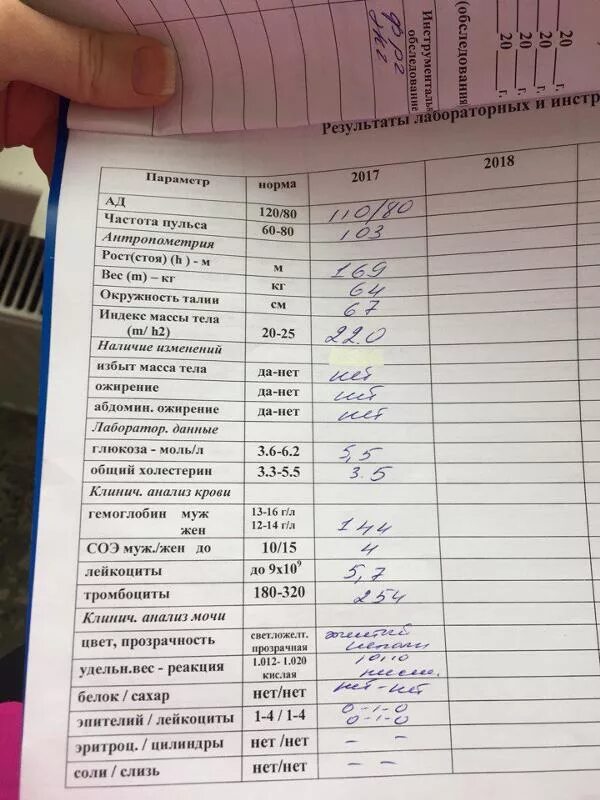 20 ___ г.
20 ___ г.
20 ___ г.
(обследования
Инструменталь
обследование
Результаты лабораторных и инстр
Параметр норма 2017 2018
АД 120/80 110/80
Частота пульса 60-80 103
Антропометрия
Рост(стоя) (h ) - м м 169
Вес (m) – кг кг 64
Окружность талии см 67
Индекс массы тела
(m/ h2) 20-25 22.0
Наличие изменений
избыт масса тела да-нет нет
ожирение да-нет нет
абдомин. ожирение да-нет нет
Лаборатор. данные
глюкоза - моль/л 3.6-6.2 5,5
общий холестерин 3.3-5.5 3.5
Клинич. анализ крови
гемоглобин муж 13-16 г/л
жен 12-14 г/л 144
СОЭ муж./жен до 10/15 4
лейкоциты до 9x10⁹ 5,7
тромбоциты 180-320 254
Клинич. анализ мочи
цвет, прозрачность свет.ложелт. желтый
прозрачная
удельн.вес - реакция 1.012- 1.020 10,10
кислая кисл.
белок / сахар нет/нет нет-нет
эпителий / лейкоциты 1-4 / 1-4 0-1-0
0-1-0
эритроц. / цилиндры нет /нет – –
соли / слизь нет/нет – –